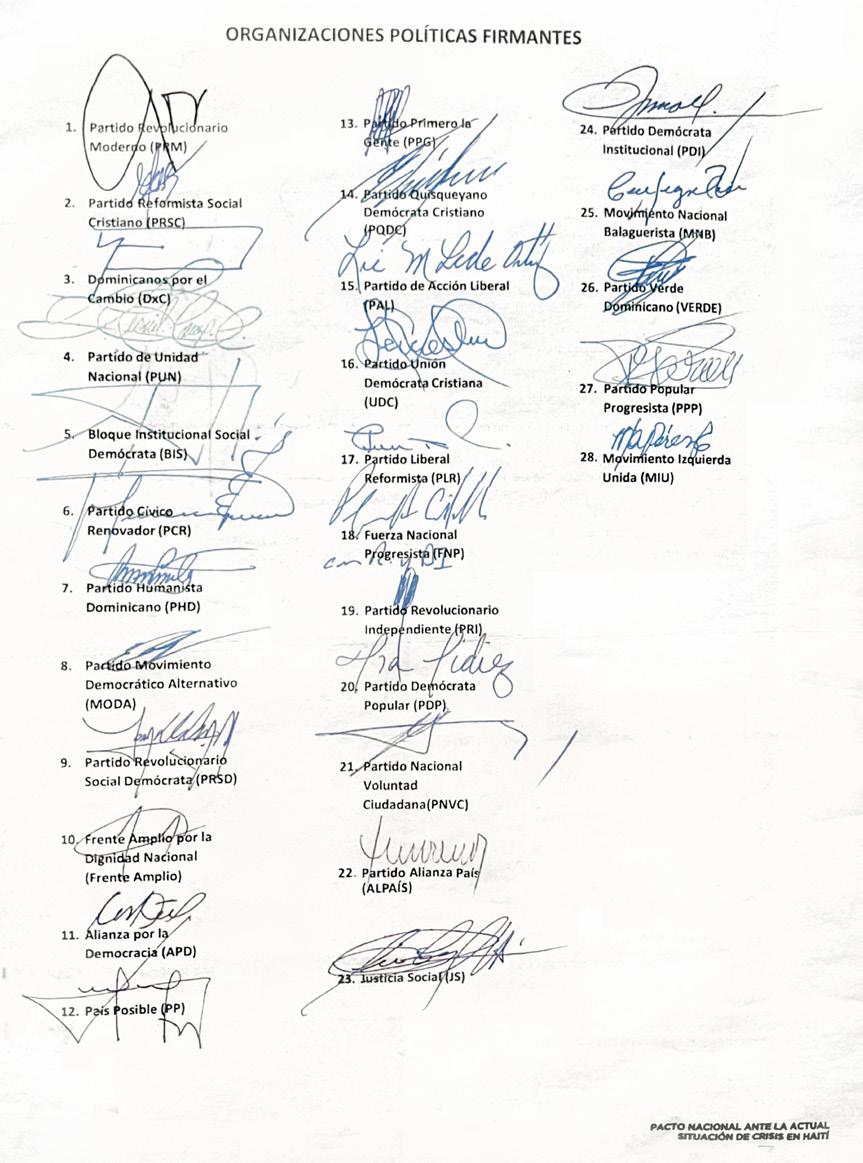 ORGANIZACIONES POLÍTICAS FIRMANTES
1. Partido Revolucionario
Moderno (PRM)
2. Partido Reformista Social
Cristiano (PRSC)
3. Dominicanos por el
Cambio (DxC)
4. Partido de Unidad
Nacional (PUN)
5. Bloque Institucional Social
Demócrata (BIS)
6. Partido Cívico
Renovador (PCR)
7. Partido Humanista
Dominicano (PHD)
8. Partido Movimiento
Democrático Alternativo
(MODA)
9. Partido Revolucionario
Social Demócrata (PRSD)
10. Frente Amplio por la
Dignidad Nacional
(Frente Amplio)
11. Alianza por la
Democracia (APD)
12. País Posible (PP)
13. Partido Primero la
Gente (PPG)
14. Partido Quisqueyano
Demócrata Cristiano
(PQDC)
15. Partido de Acción Liberal
(PAL)
16. Partido Unión
Demócrata Cristiana
(UDC)
17. Partido Liberal
Reformista (PLR)
18. Fuerza Nacional
Progresista (FNP)
19. Partido Revolucionario
Independiente (PRI)
20. Partido Demócrata
Popular (PDP)
21. Partido Nacional
Voluntad
Ciudadana(PNVC)
22. Partido Alianza País
(ALPAÍS)
23. Justicia Social (JS)
24. Partido Demócrata
Institucional (PDI)
25. Movimiento Nacional
Balaguerista (MNB)
26. Partido Verde
Dominicano (VERDE)
27. Partido Popular
Progresista (PPP)
28. Movimiento Izquierda
Unida (MIU)
PACTO NACIONAL ANTE LA ACTUAL
SITUACIÓN DE CRISIS EN HAITÍ